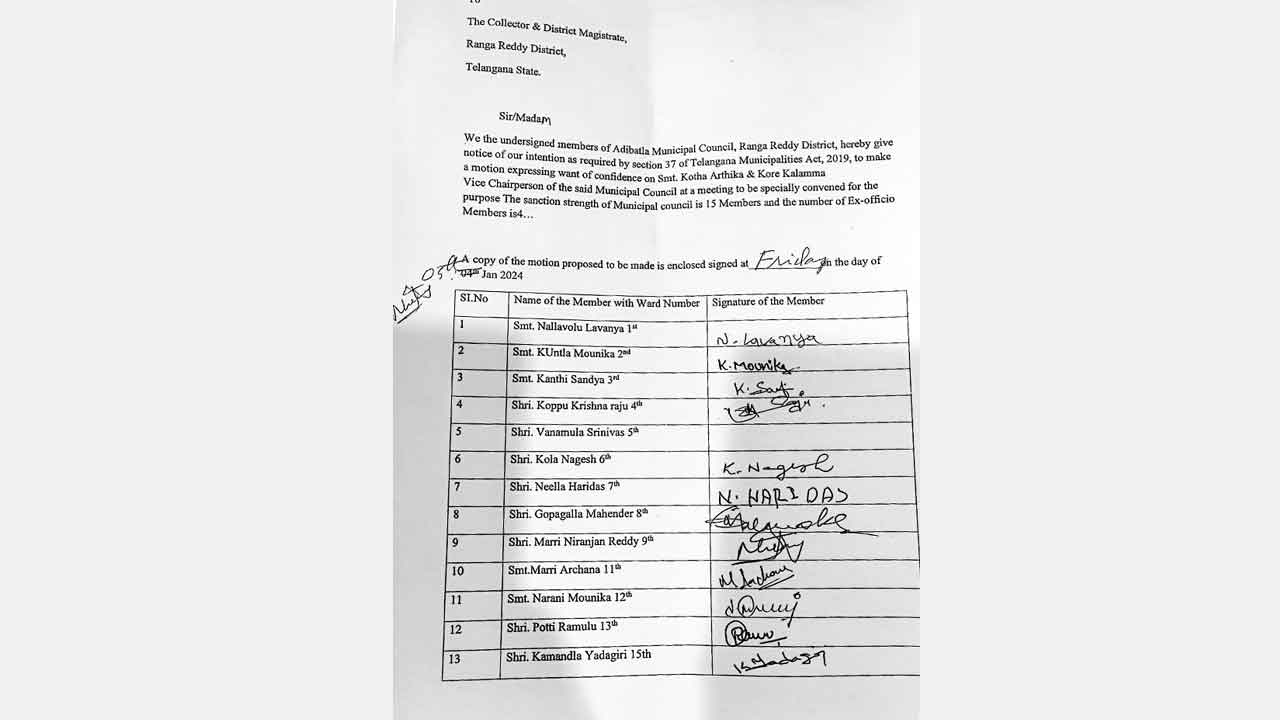 To
The Collector & District Magistrate,
Ranga Reddy District,
Telangana State.
Sir/Madam
We the undersigned members of Adibatla Municipal Council, Ranga Reddy District, hereby give
notice of our intention as required by section 37 of Telangana Municipalities Act, 2019, to make
a motion expressing want of confidence on Smt. Kotha Arthika & Kore Kalamma
Vice Chairperson of the said Municipal Council at a meeting to be specially convened for the
purpose The sanction strength of Municipal council is 15 Members and the number of Ex-officio
Members is4...
A copy of the motion proposed to be made is enclosed signed at Friday on the day of
04th Jan 2024
SI.No Name of the Member with Ward Number Signature of the Member
1 Smt. Nallavolu Lavanya 1st N. Lavanya
2 Smt. KUntla Mounika 2nd K. Mounika
3 Smt. Kanthi Sandya 3rd
4 Shri. Koppu Krishna raju 4th
5 Shri. Vanamula Srinivas 5th
6 Shri. Kola Nagesh 6th K. Nagesh
7 Shri. Neella Haridas 7th N. HARI DAS
8 Shri. Gopagalla Mahender 8th
9 Shri. Marri Niranjan Reddy 9th
10 Smt.Marri Archana 11th
11 Smt. Narani Mounika 12th
12 Shri. Potti Ramulu 13th
13 Shri. Kamandla Yadagiri 15th